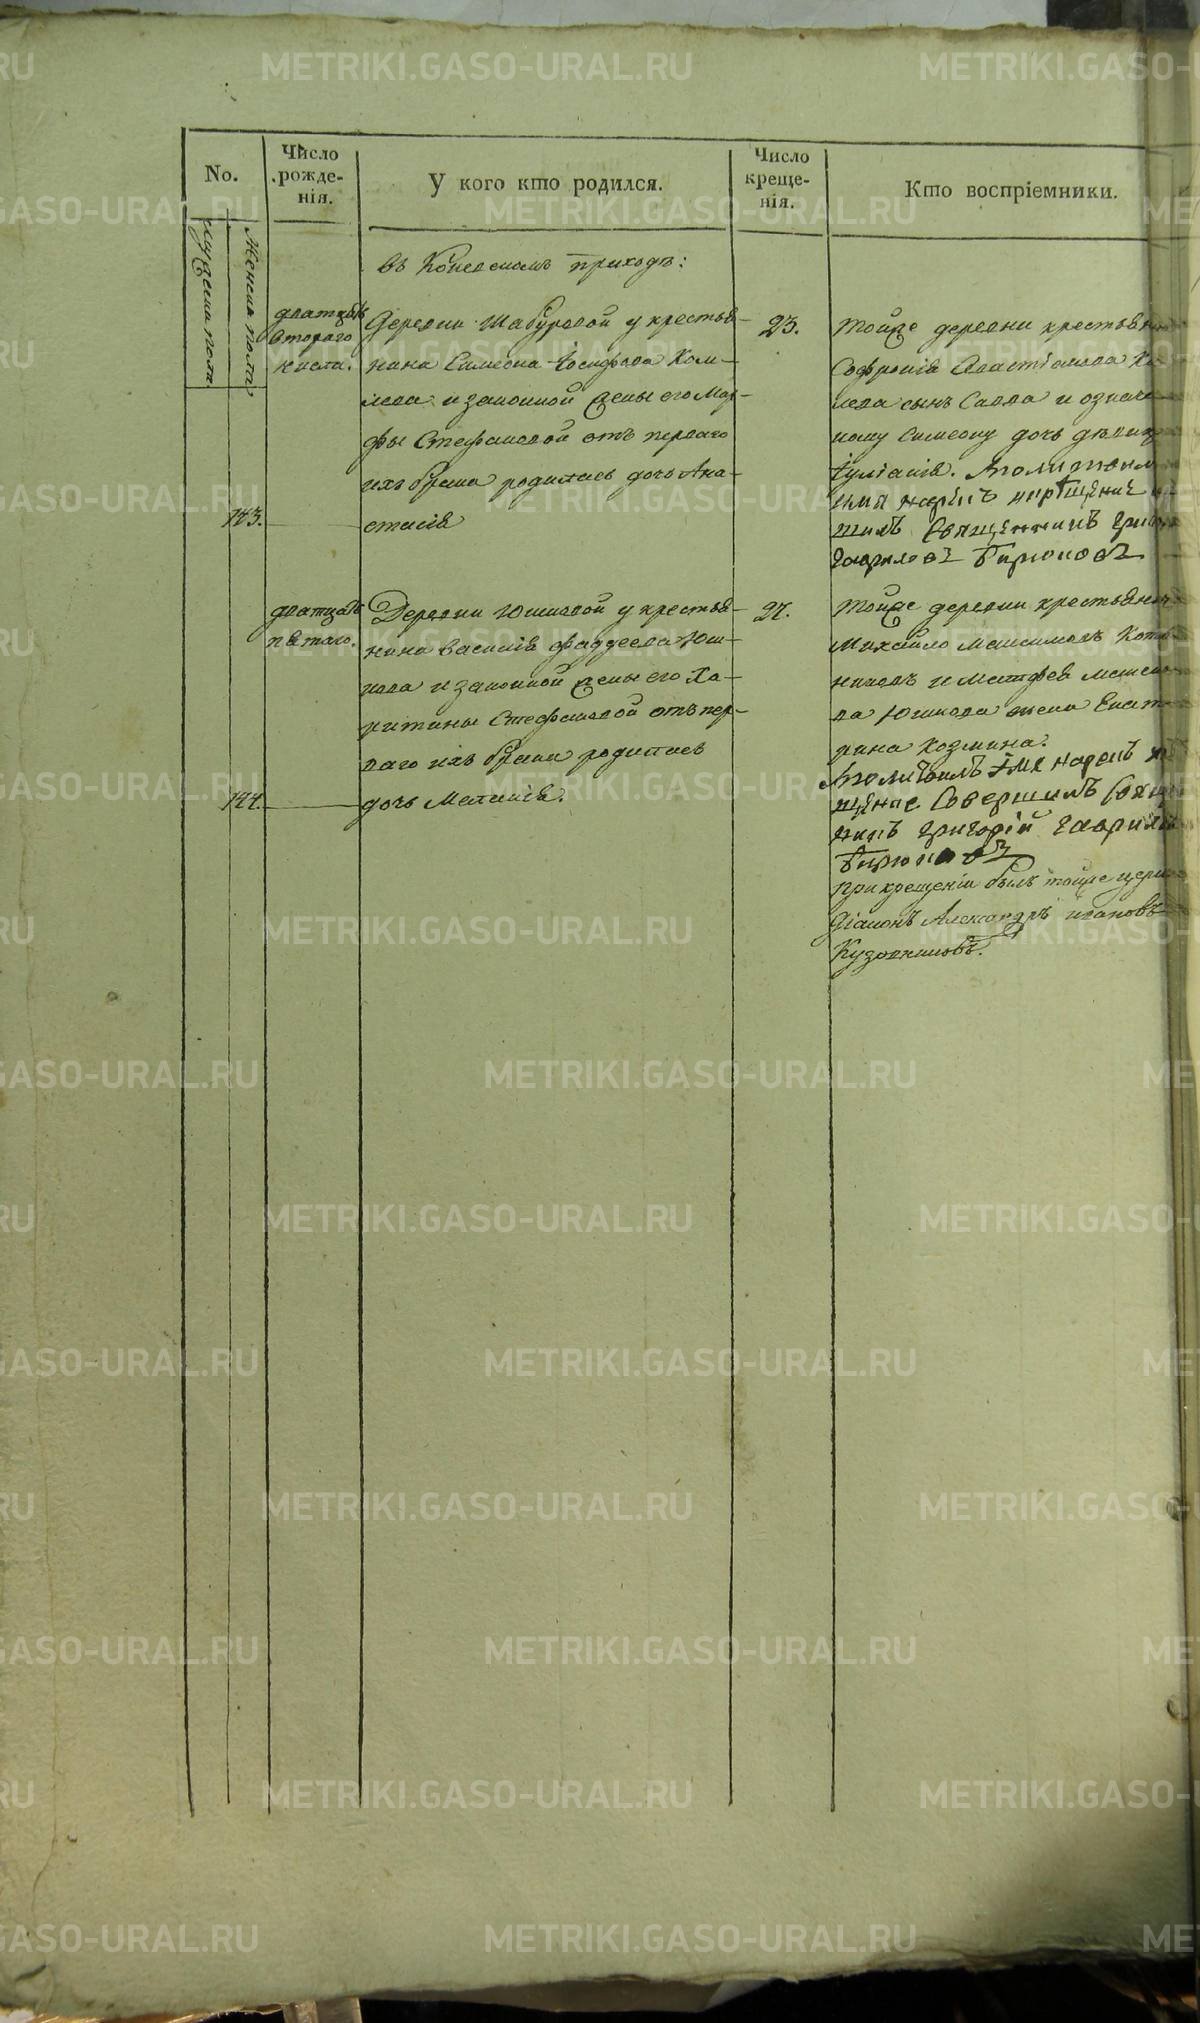 No.
Число рожде-нія.
У кого кто родился.
Число креще-нія.
Кто воспріемники.
Мужеска пола
Женска пола
въ Коневскомъ приходѣ:
дватцать
втораго
числа.
Деревни Шабуровой у крестья-
нина Симеона Іосифова Ком-
лева и законной жены его Мар-
фы Стефановой отъ перваго
ихъ брака родилась дочь Ана-
143.
стасія
23.
Тойже деревни крестьянина
Софронія
лева сынъ Савва и означен-
ному Симеону дочь дѣвица
Іуліанія. Молитвилъ
имя нарекъ
шилъ Священникъ
Гавриловъ Бирюковъ
дватцать
пятаго.
Деревни Юшковой у крестья-
нина Василія Фаддеева Юш-
кова и законной жены его Ха-
ритины Стефановой отъ пер-
ваго ихъ брака родилась
144.
дочь Меланія.
27.
Тойже деревни крестьянинъ
Михайло Максимовъ
и Матфея
ва Юшкова жена Екате-
рина Козмина.
Молитвилъ имя нарекъ
щеніе Совершилъ Священ-
никъ Григорій Гавриловъ
Бирюковъ
При крещеніи былъ тойже церкви
Діаконъ Александръ Ивановъ
Кузовниковъ.
METRIKI.GASO-URAL.RU